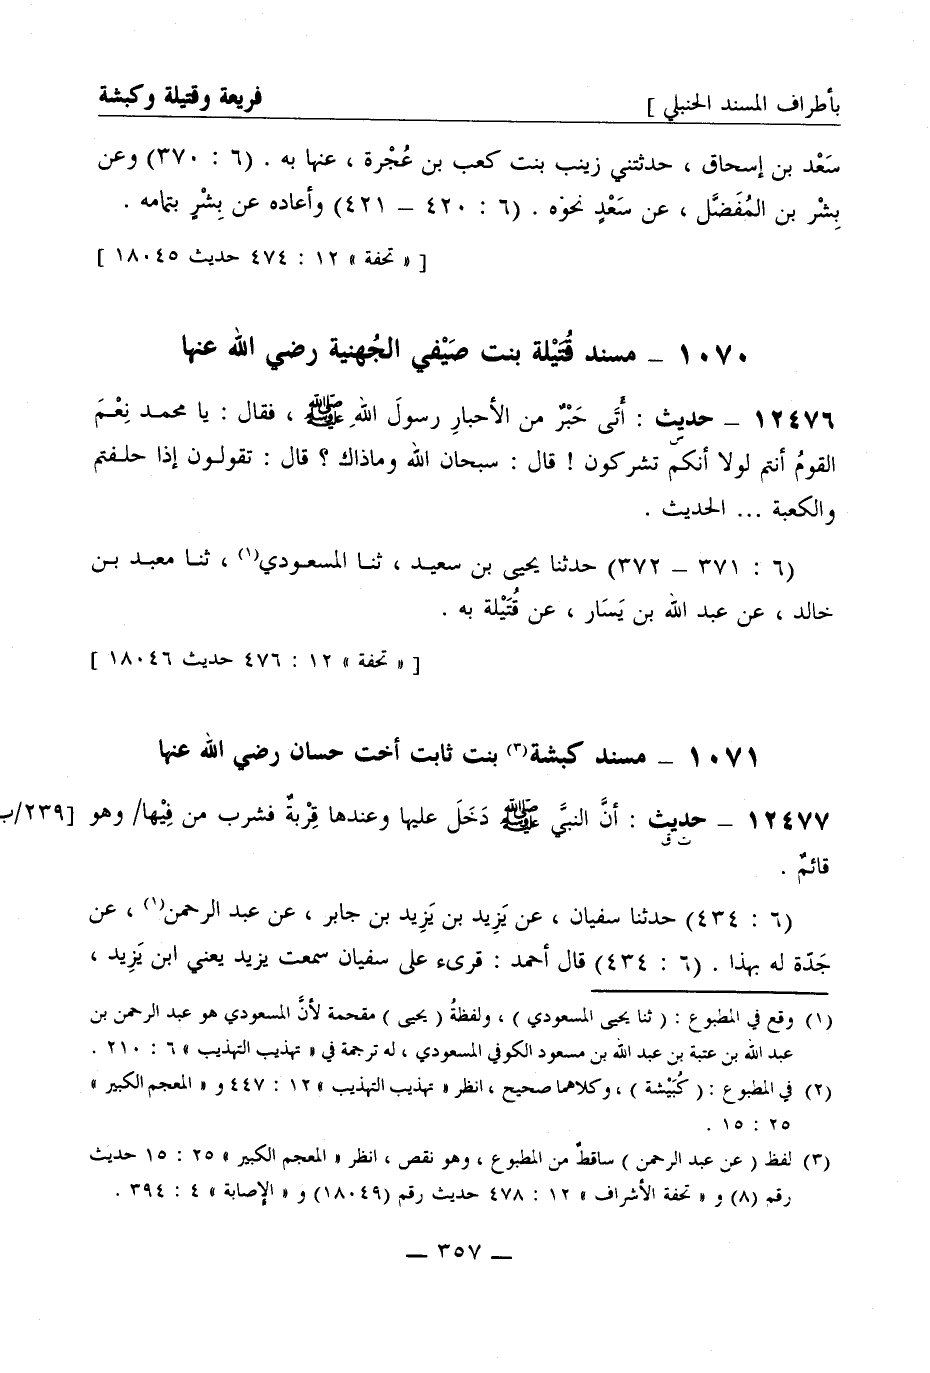 بأطراف المسند الحنبلي ] فريعة وقتيلة وكبشة
سَعْد بن إسحاق ، حدثتني زينب بنت كعب بن عُجْرة ، عنها به . (٦ : ٣٧٠) وعن
بِشْر بن المُفَضَّل ، عن سَعْدٍ نحوَه . (٦ : ٤٢٠ – ٤٢١) وأعاده عن بِشْرٍ بتمامه .
[ « تحفة » ١٢ : ٤٧٤ حديث ١٨٠٤٥ ]
١٠٧٠ – مسند قُتَيْلة بنت صَيْفي الجُهنية رضي الله عنها
١٢٤٧٦ – حديث : أَتَى حَبْرٌ من الأحبارِ رسولَ اللهِ ﷺ ، فقال : يا محمد نِعْمَ
س
القومُ أنتم لولا أنكم تشركون ! قال : سبحان الله وماذاك ؟ قال : تقولون إذا حلفتم
والكعبة ... الحديث .
(٦ : ٣٧١ – ٣٧٢) حدثنا يحيى بن سعيد ، ثنا المسعودي(١) ، ثنا معبد بن
خالد ، عن عبد الله بن يَسَار ، عن قُتَيْلة به .
[ « تحفة » ١٢ : ٤٧٦ حديث ١٨٠٤٦ ]
١٠٧١ – مسند كبشة(٢) بنت ثابت أخت حسان رضي الله عنها
١٢٤٧٧ – حديث : أنَّ النبيَّ ﷺ دَخَلَ عليها وعندها قِرْبةٌ فشرب من فِيْها/ وهو [٢٣٩/ب
ت ق
قائمٌ .
(٦ : ٤٣٤) حدثنا سفيان ، عن يَزِيد بن يَزِيد بن جابر ، عن عبد الرحمن(١) ، عن
جَدّة له بهذا . (٦ : ٤٣٤) قال أحمد : قرىء على سفيان سمعت يزيد يعني ابن يَزِيد ،
(١) وقع في المطبوع : ( ثنا يحيى المسعودي ) ، ولفظةُ ( يحيى ) مقحمة لأنَّ المسعودي هو عبد الرحمن بن
عبد الله بن عتبة بن عبد الله بن مسعود الكوفي المسعودي ، له ترجمة في « تهذيب التهذيب » ٦ : ٢١٠ .
(٢) في المطبوع : ( كُبَيْشة ) ، وكلاهما صحيح ، انظر « تهذيب التهذيب » ١٢ : ٤٤٧ و « المعجم الكبير »
٢٥ : ١٥ .
(٣) لفظ ( عن عبد الرحمن ) ساقطٌ من المطبوع ، وهو نقص ، انظر « المعجم الكبير » ٢٥ : ١٥ حديث
رقم (٨) و « تحفة الأشراف » ١٢ : ٤٧٨ حديث رقم (١٨٠٤٩) و « الإصابة » ٤ : ٣٩٤ .
– ٣٥٧ –